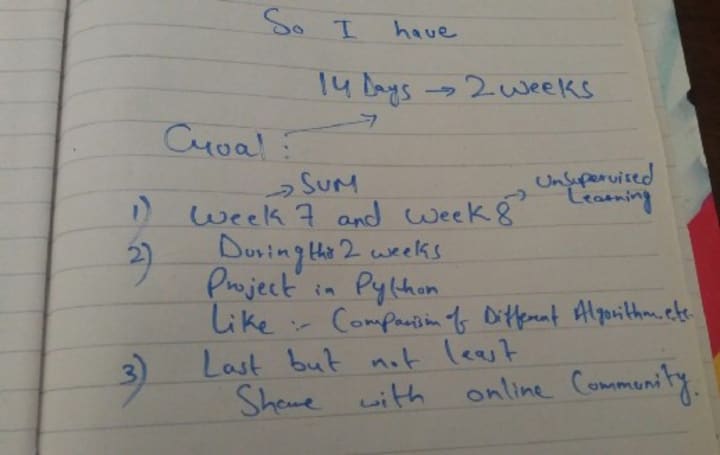 So I have
14 Days → 2 weeks
Goal :
→ SVM
→ Unsupervised
Learning
1) Week 7 and Week 8
2) During this 2 weeks
Project in Python
Like :- Comparism of Different Algorithm.etc.
3) Last but not least
Share with online Community.